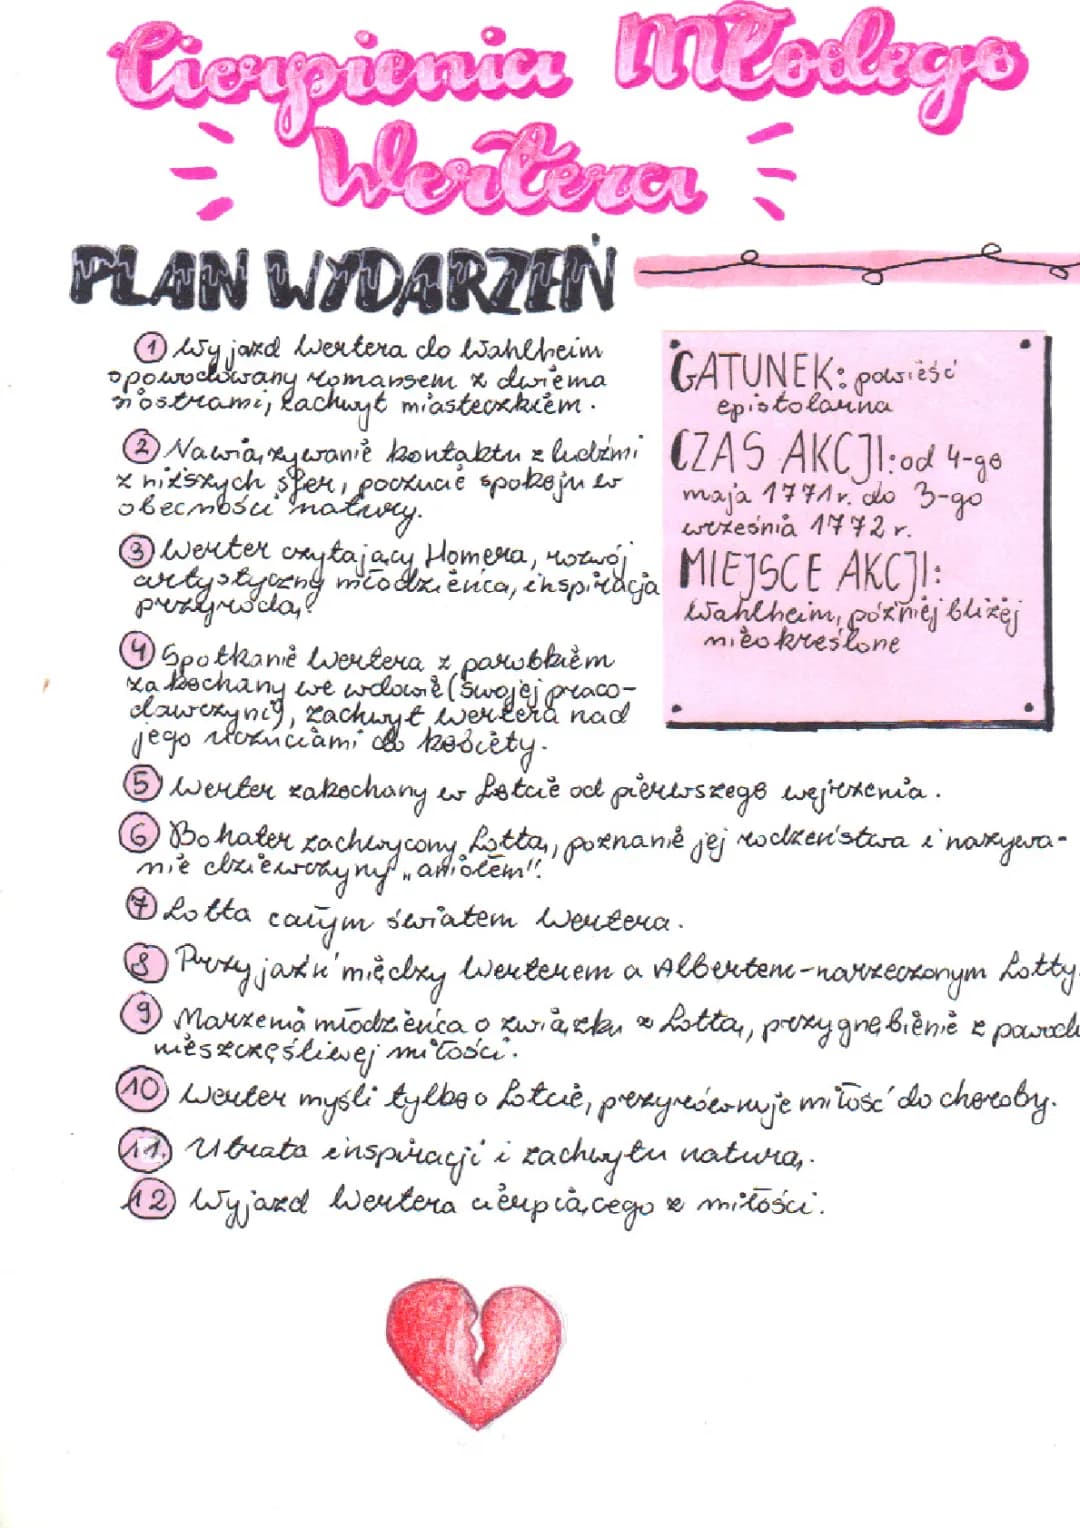 Cierpienia Młodego
Wertera
PLAN WYDARZEŃ
1 Wyjazd Wertera do Wahlheim
spowodowany romansem z dwiema
siostrami, zachwyt miasteczkiem.
2 Nawiązywanie kontaktu z ludźmi
z niższych sfer, poczucie spokoju w
obecności natury.
3 Werter czytający Homera, rozwój
artystyczny młodzieńca, inspiracja
przyrodą.
4 Spotkanie Wertera z parobkiem
zakochany we wdowie (swojej praco-
dawczyni), zachwyt Wertera nad
jego uczuciami do kobiety.
GATUNEK: powieść
epistolarna
CZAS AKCJI: od 4-go
maja 1771r. do 3-go
września 1772 r.
MIEJSCE AKCJI:
Wahlheim, później bliżej
nieokreślone
5 Werter zakochany w Lotcie od pierwszego wejrzenia.
6 Bohater zachwycony Lottą, poznanie jej rodzeństwa i nazywa-
nie dziewczyny „aniołem".
7 Lotta całym światem Wertera.
8 Przyjaźń między Werterem a Albertem-narzeczonym Lotty.
9 Marzenia młodzieńca o związku z Lottą, przygnębienie z
nieszczęśliwej miłości.
10 Werter myśli tylko o Lotcie, przyrównuje miłość do choroby.
11. Utrata inspiracji i zachwytu naturą.
12 Wyjazd Wertera cierpiącego z miłości.